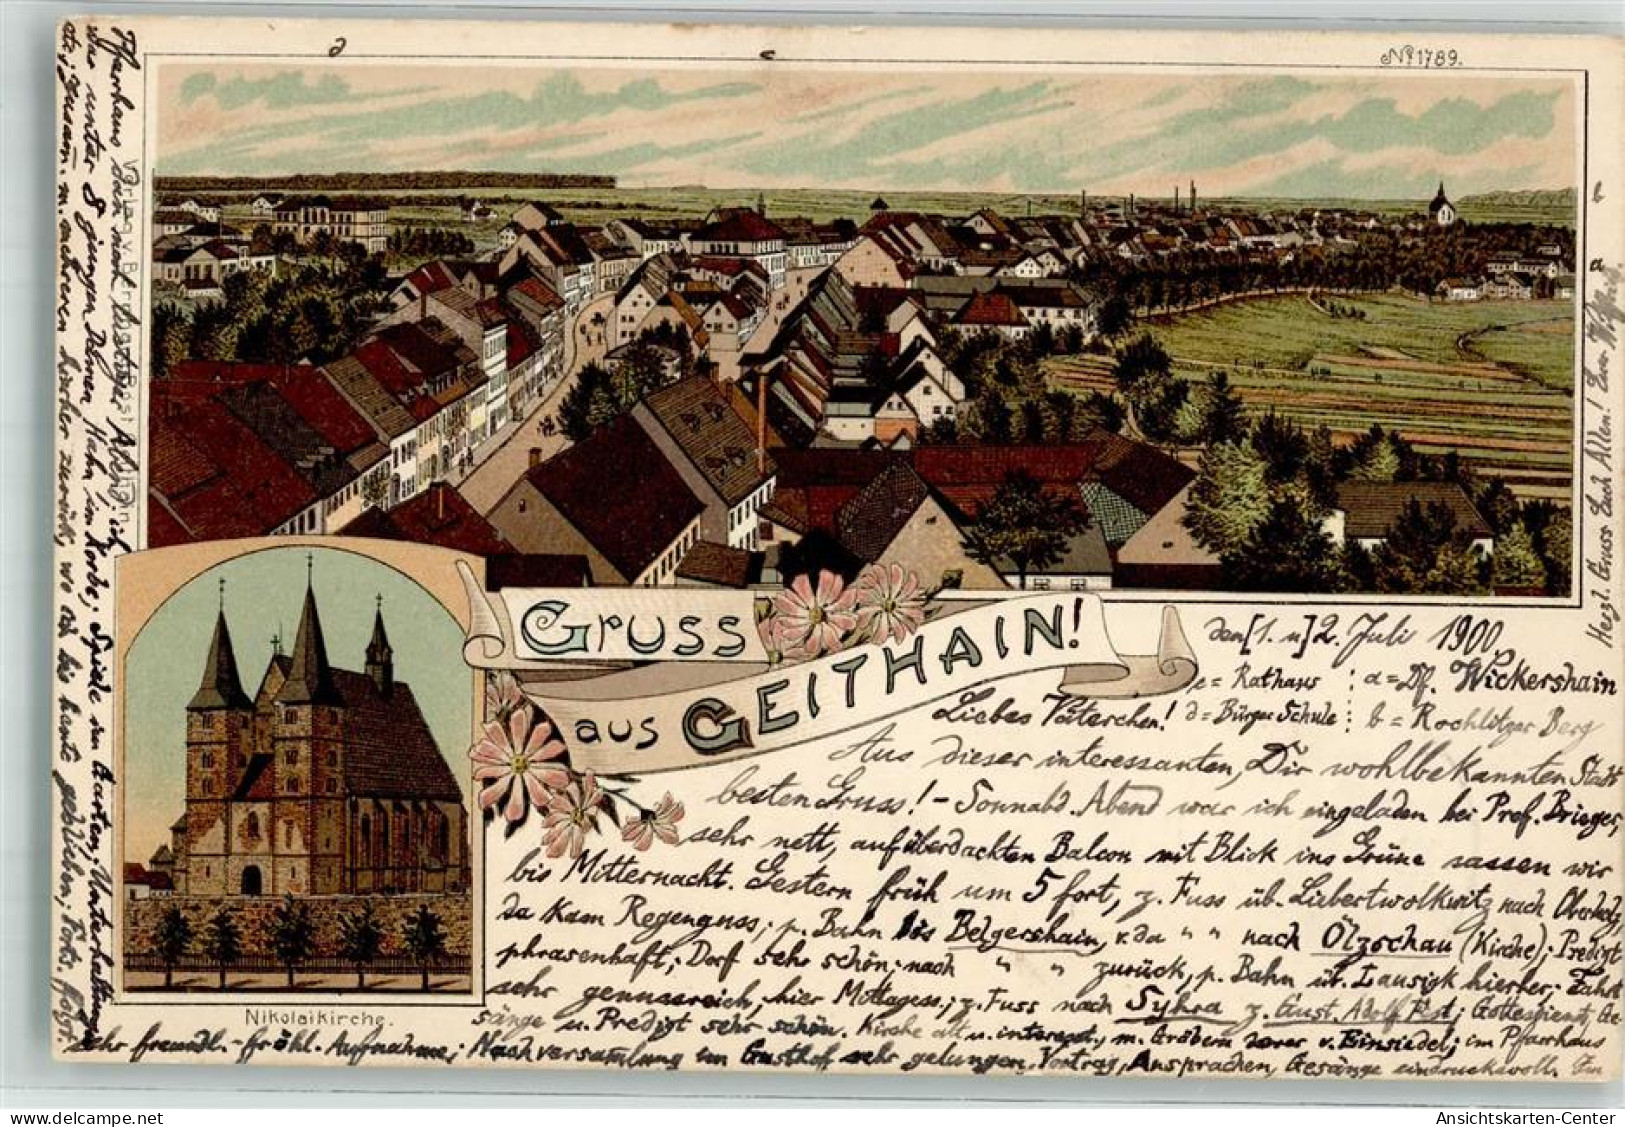 d
c
No 1789.
b
a
GRUSS
aus GEITHAIN!
Nikolaikirche.
den [1. u] 2. Juli 1900
e = Rathaus : a = Df. Wickershain
Liebes Väterchen! d = Bürger Schule : b = Rochlitzer Berg
Aus dieser interessanten, Dir wohlbekannten Stadt
besten Gruss! – Sonnabd. Abend war ich eingeladen bei Prof. Brieger,
sehr nett, auf überdachten Balcon mit Blick ins Grüne sassen wir
bis Mitternacht. Gestern früh um 5 fort, z. Fuss üb. Liebertwolkwitz nach
da kam Regenguss; p. Bahn bis Belgershain, v. da " " nach Ölzschau (Kirche); Predigt
phrasenhaft; Dorf sehr schön; nach " " zurück, p. Bahn üb. Lausigk hierher. Fahrt
sehr genussreich, hier Mittagess.; z. Fuss nach Syhra z. Gust. Adolf Fest; Gottesdienst, Ge-
sänge u. Predigt sehr schön. Kirche alt u. interesst., m. Gräbern derer v. Einsiedel; im Pfarrhaus
sehr freundl. – fröhl. Aufnahme; Nachversammlung im Gasthof sehr gelungen. Vortrag, Ansprachen, Gesänge eindrucksvoll. Im
Pfarrhaus dann noch
das unter 8 jungen Damen Hahn im Korbe; Spiele im Garten, Unterhaltung
etc; zusam. m. mehreren hierher zurück, wo ich bis heute geblieben; Forts. folgt.
Herzl. Gruss Euch Allen! Euer Wilfried.
Ansichtskarten-Center